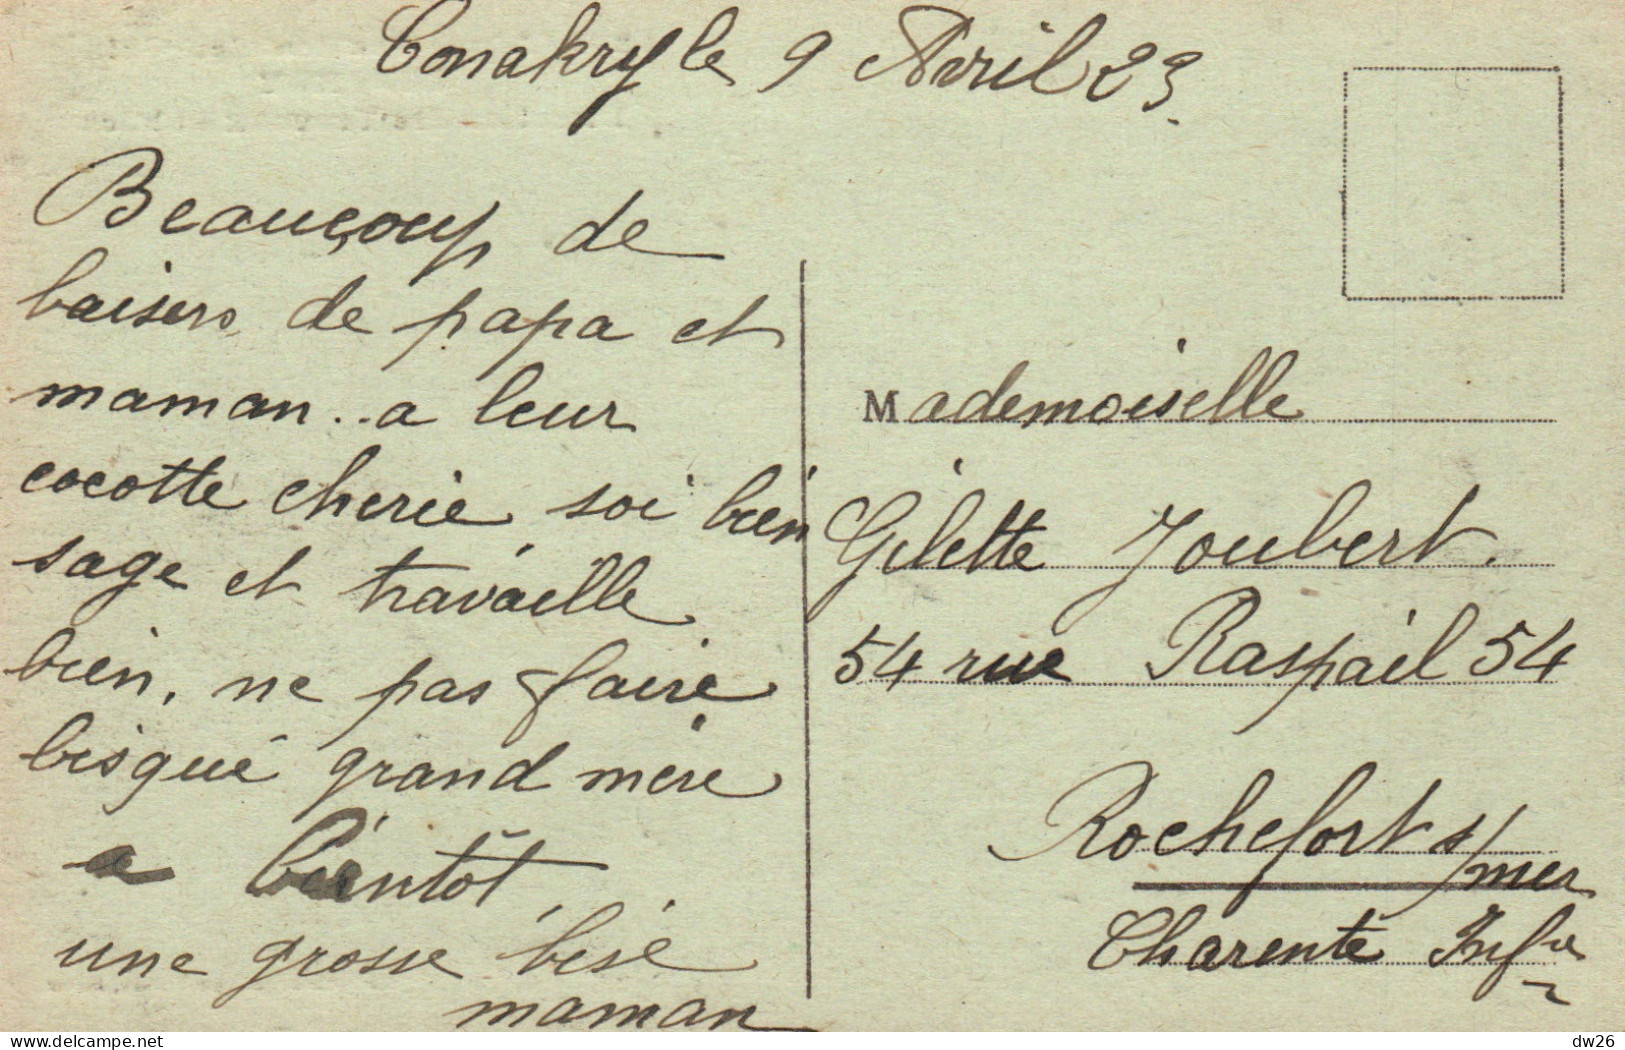 Conakry le 9 Avril 23.
Beaucoup de
baisers de papa et
maman.. a leur
cocotte cherie soi bien
sage et travaille
bien, ne pas faire
bisqué grand mère
a bientôt,
une grosse bise
maman
Mademoiselle
Gilette Joubert.
54 rue Raspail 54
Rochefort s/mer
Charente Infre
delcampe.net
dw26